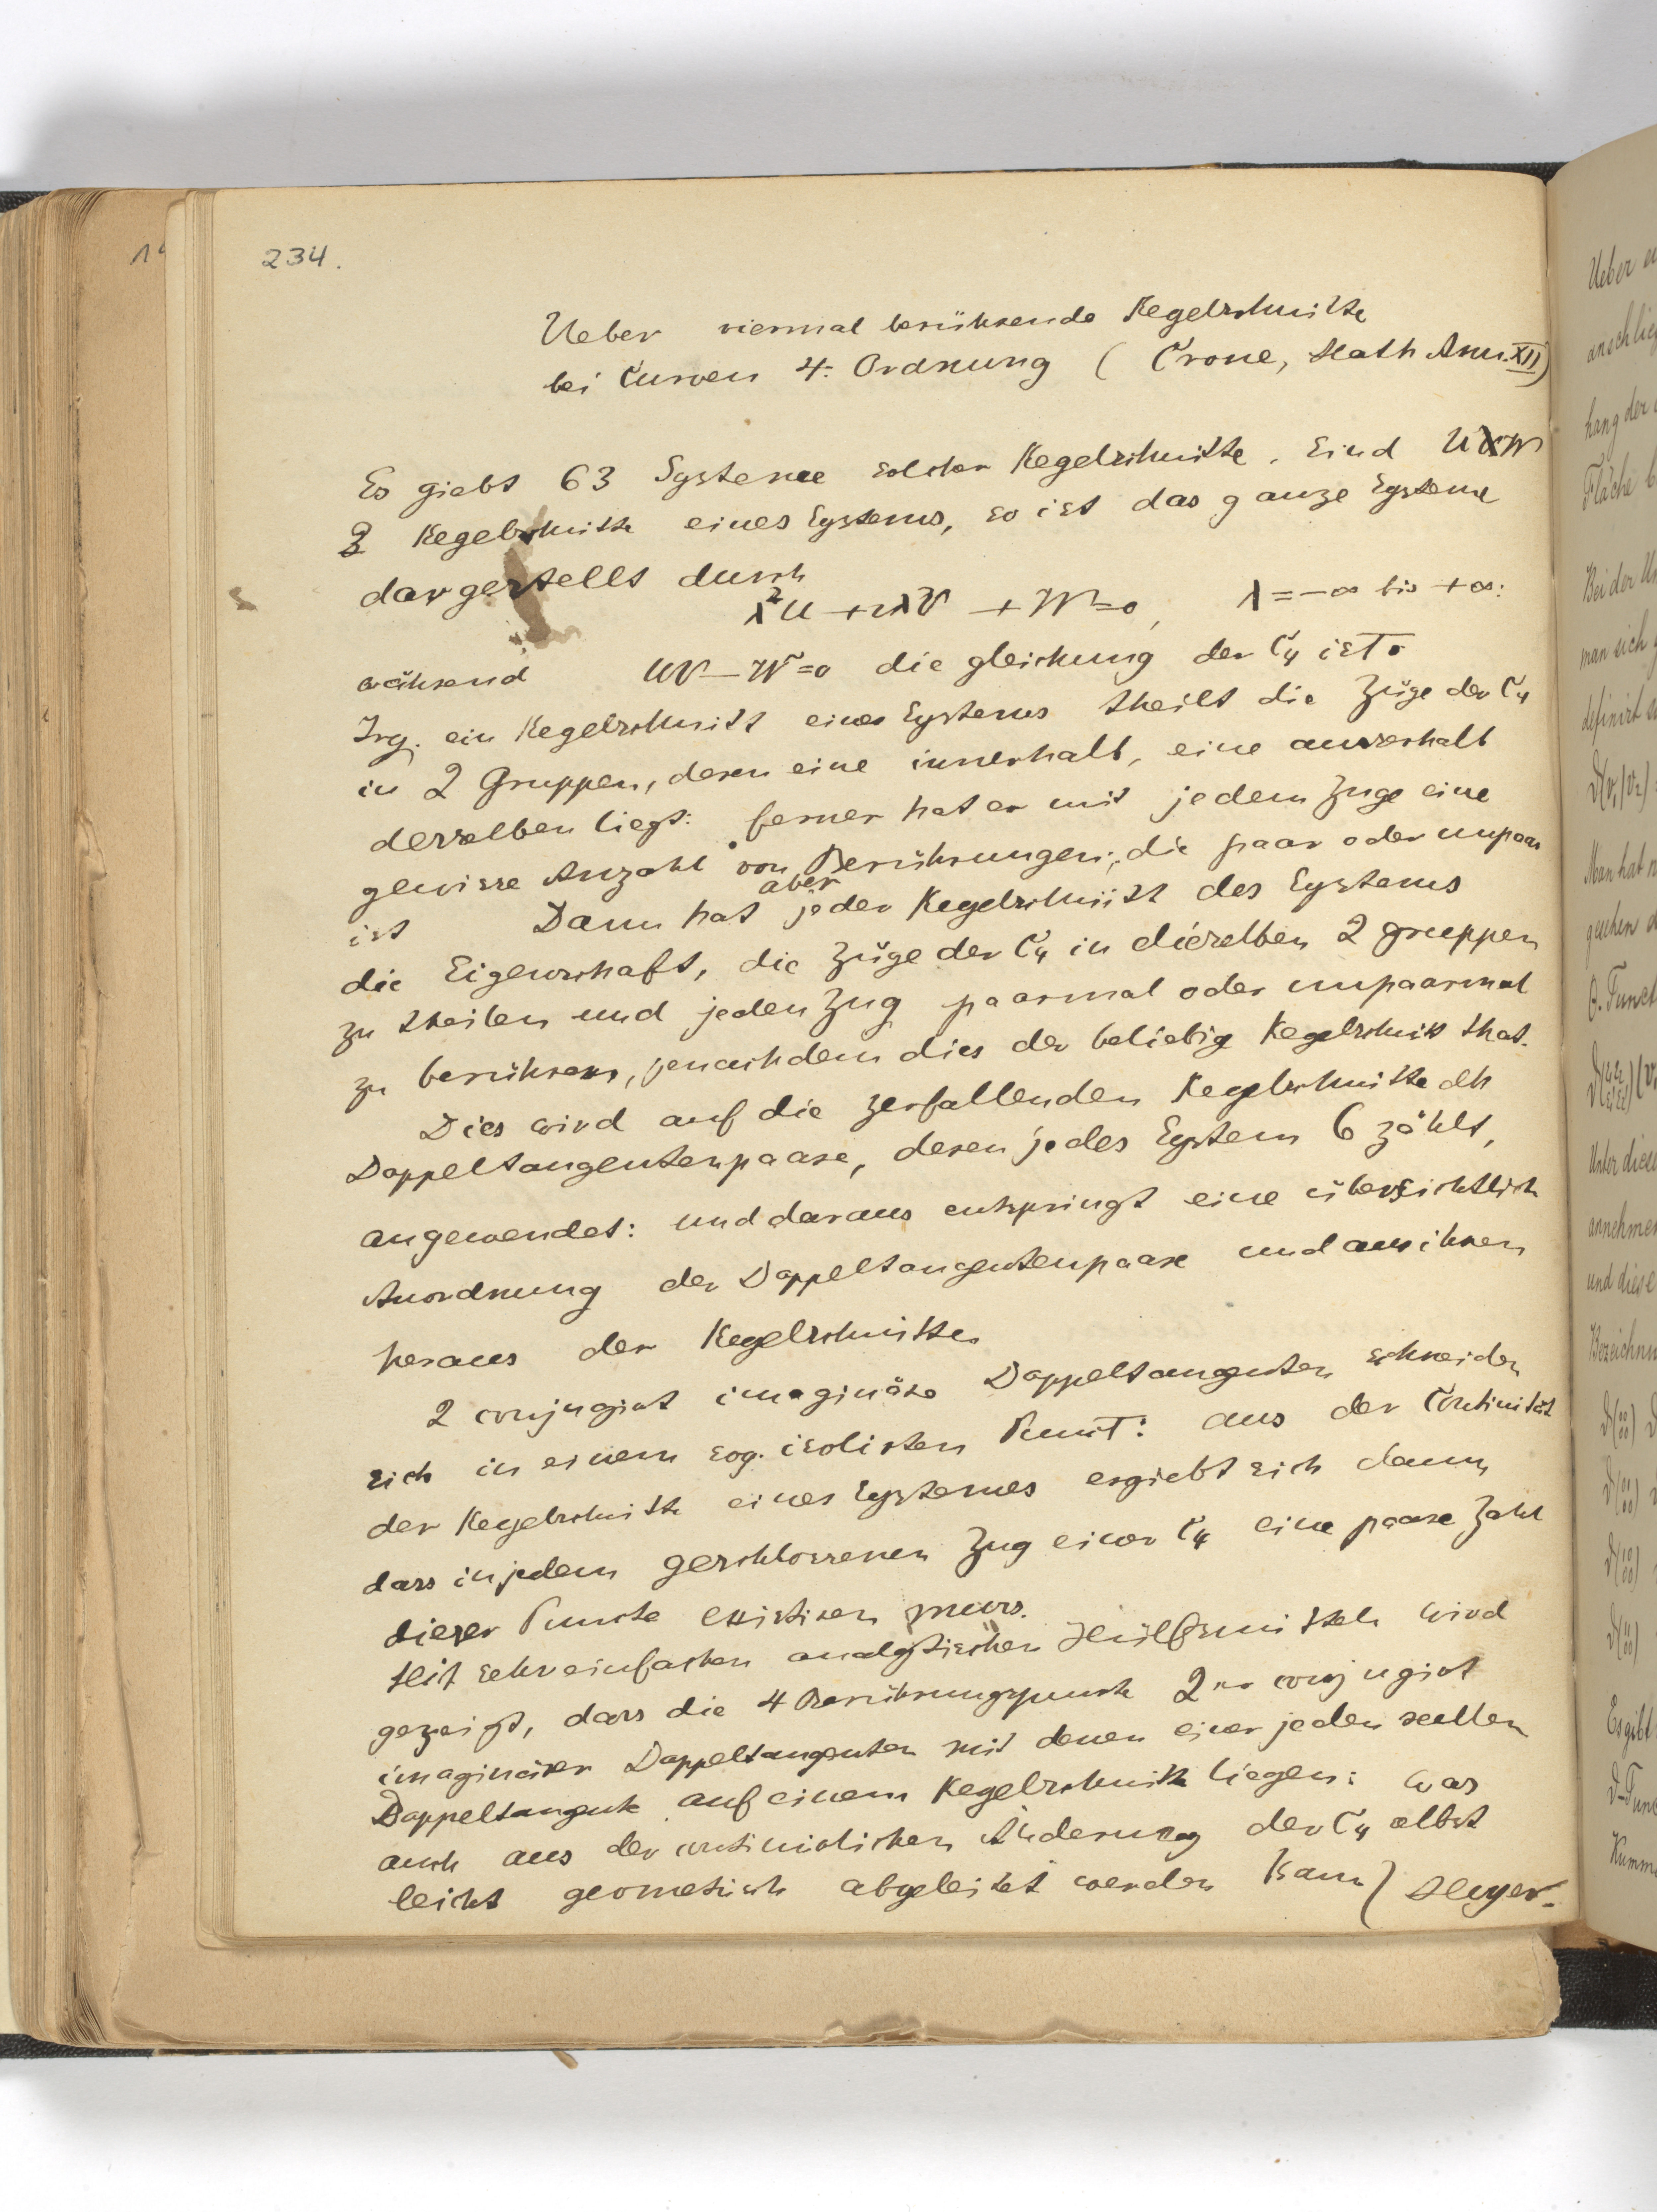 234.
Ueber viermal berührende Kegelschnitte
bei Curven 4. Ordnung (Crone, Math Ann. XII)
Es giebt 63 Systeme solcher Kegelschnitte. Sind U W
2 Kegelschnitte eines Systems, so ist das ganze System
dargestellt durch
λ²U + 2λV + W = 0, λ = -∞ bis +∞:
während UV - W² = 0 die gleichung der C4 ist.
Irg. ein Kegelschnitt eines Systems theilt die Züge der C4
in 2 Gruppen, deren eine innerhalb, eine ausserhalb
desselben liegt: ferner hat er mit jedem Zuge eine
gewisse Anzahl von Berührungen, die paar oder unpaar
ist Dann hat aber jeder Kegelschnitt des Systems
die Eigenschaft, die Züge der C4 in dieselben 2 gruppen
zu theilen und jeden Zug paarmal oder unpaarmal
zu berühren, jenachdem dies der beliebig Kegelschnitt that.
Dies wird auf die zerfallenden Kegelschnitte dh
Doppeltangentenpaare, deren jedes System 6 zählt,
angewendet: und daraus entspringt eine übersichtlich
Anordnung der Doppeltangentenpaare und aus ihnen
heraus der Kegelschnitte
2 conjugirt imaginäre Doppeltangenten schneiden
sich in einem sog. isolirten Punct: aus der Continuität
der Kegelschnitte eines Systemes ergiebt sich dann,
dass in jedem geschlossenen Zug einer C4 eine paare Zahl
dieser Puncte existiren muss.
Mit sehr einfachen analytischen Hülfsmitteln wird
gezeigt, dass die 4 Berührungspunkte 2er conjugirt
imaginärer Doppeltangenten mit denen einer jeden reellen
Doppeltangente auf einem Kegelschnitte liegen: was
auch aus der continuirlichen Änderung der C4 selbst
leicht geometrisch abgeleitet werden kann) Meyer.
14
Ueber
anschlie
hang der
Fläche
Bei der
man sich
definirt
Man hat
gesehen
Unter diese
annehmen
und diese
Bezeichnu
Es gibt
Kumm